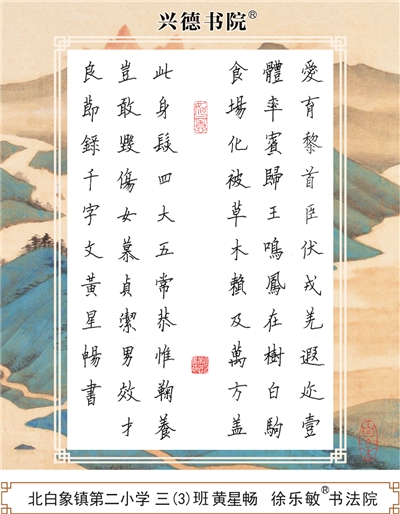 兴德书院®
愛育黎首臣伏戎羌遐迩壹
體率賓歸王鳴鳳在樹白駒
食場化被草木賴及萬方蓋
此身髮四大五常恭惟鞠養
豈敢毀傷女慕貞潔男效才
良節録千字文黃星暢書
北白象镇第二小学 三(3)班 黄星畅 徐乐敏®书法院